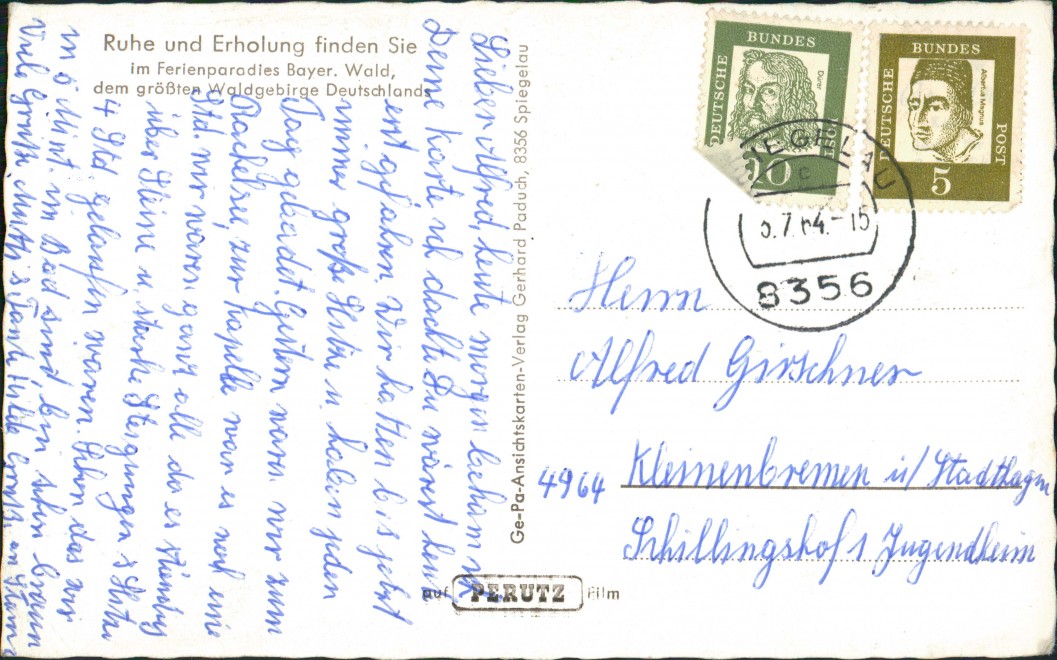 Ruhe und Erholung finden Sie
im Ferienparadies Bayer. Wald,
dem größten Waldgebirge Deutschlands
Lieber Alfred, heute morgen bekam ich
Deine Karte ich dachte Du wärest heute
erst gefahren. Wir hatten bis jetzt
immer große Hitze u. haben jeden
Tag gebadet. Gestern waren wir zum
Rachelsee, zur Kapelle war es noch eine
Std. wir waren ganz alle da es ständig
über Steine u. starke Steigungen u. Hitze
4 Std. gelaufen waren. Schön das wir
im Bad sind bin schon braun
Viele Grüße Mutti u.
Ge-Pa-Ansichtskarten-Verlag Gerhard Paduch, 8356 Spiegelau
auf PERUTZ Film
DEUTSCHE BUNDESPOST
Dürer
10
DEUTSCHE BUNDESPOST
Albertus Magnus
5
EGELAU
c
5.7.64.-15
8356
Herrn
Alfred Girschner
4964 Kleinenbremen ü/ Stadthagen
Schillingshof 1 Jugendheim